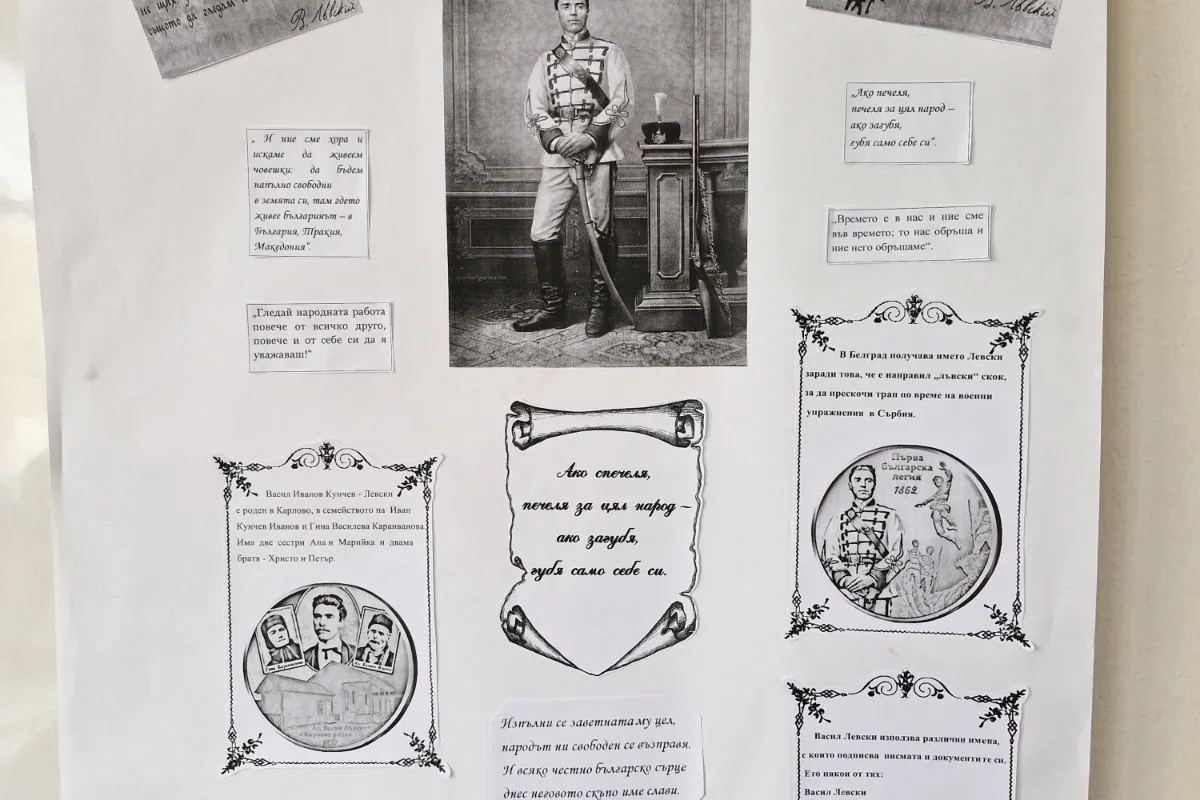 не щях
същото да гледам и
В. Лъвскій
В. Лъвскій
„ И ние сме хора и
искаме да живеем
човешки: да бъдем
напълно свободни
в земята си, там гдето
живее българинът – в
България, Тракия,
Македония“.
„Гледай народната работа
повече от всичко друго,
повече и от себе си да я
уважаваш!“
„Ако печеля,
печеля за цял народ –
ако загубя,
губя само себе си“.
„Времето е в нас и ние сме
във времето; то нас обръща и
ние него обръщаме“.
В Белград получава името Левски
заради това, че е направил „лъвски“ скок,
за да прескочи трап по време на военни
упражнения в Сърбия.
Първа
българска
легия
1862
Васил Иванов Кунчев - Левски
е роден в Карлово, в семейството на Иван
Кунчев Иванов и Гина Василева Караиванова.
Има две сестри Ана и Марийка и двама
братя - Христо и Петър.
Ако спечеля,
печеля за цял народ –
ако загубя,
губя само себе си.
Изпълни се заветната му цел,
народът ни свободен се възправя.
И всяко честно българско сърце
днес неговото скъпо име слави.
Васил Левски използва различни имена,
с които подписва писмата и документите си.
Ето някои от тях:
Васил Левски